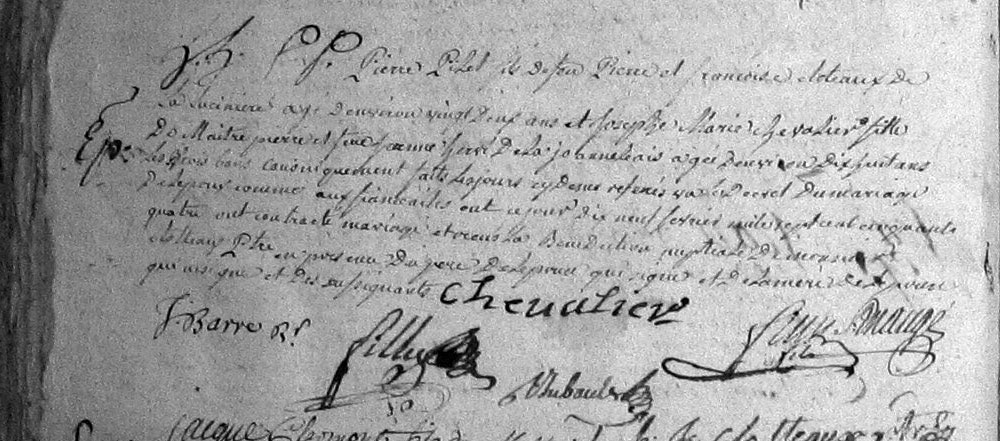 Pierre Pilet fils de feu Pierre et francoise cloteaux de
La Lucinière agé denviron vingt deux ans et Josephe Marie chevalier fille
Ep.
De Maitre pierre et feue jeanne hervé De La journelais agée denviron Dixhuit ans
Les trois bans canoniquement faits les jours cy dessus referés vu le Decret Du mariage
de Lepoux comme aux fiancailles ont ce jour dix neuf fevrier mile sept cent cinquante
quatre ont contracté mariage et recu La Benediction nuptiale De
Ptre en presence Du pere De Lepouse qui signe et De La mere De
qui ne signe et Des soussignants
Chevalier
J Barre